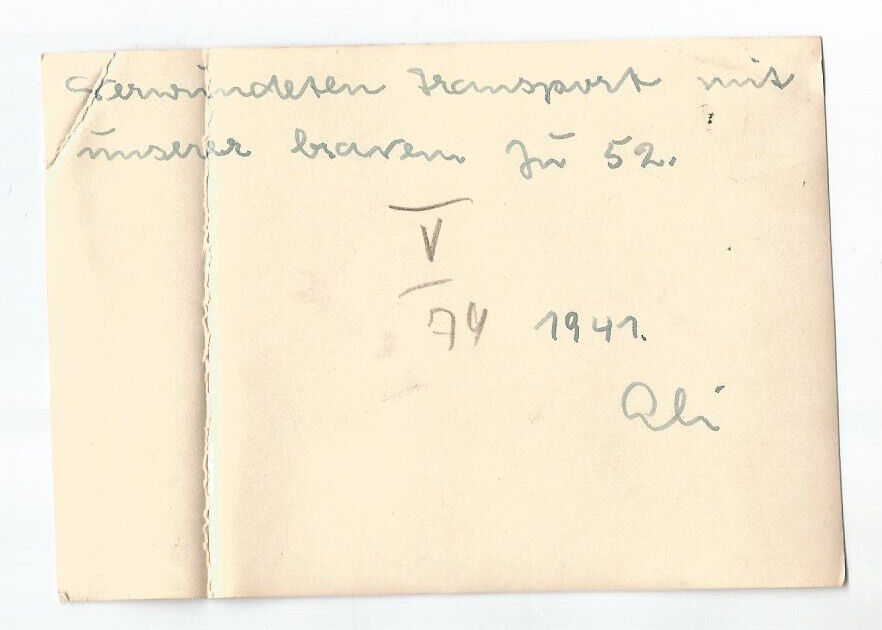 Verwundeten transport mit
unserer braven Ju 52.
V
74 1941.